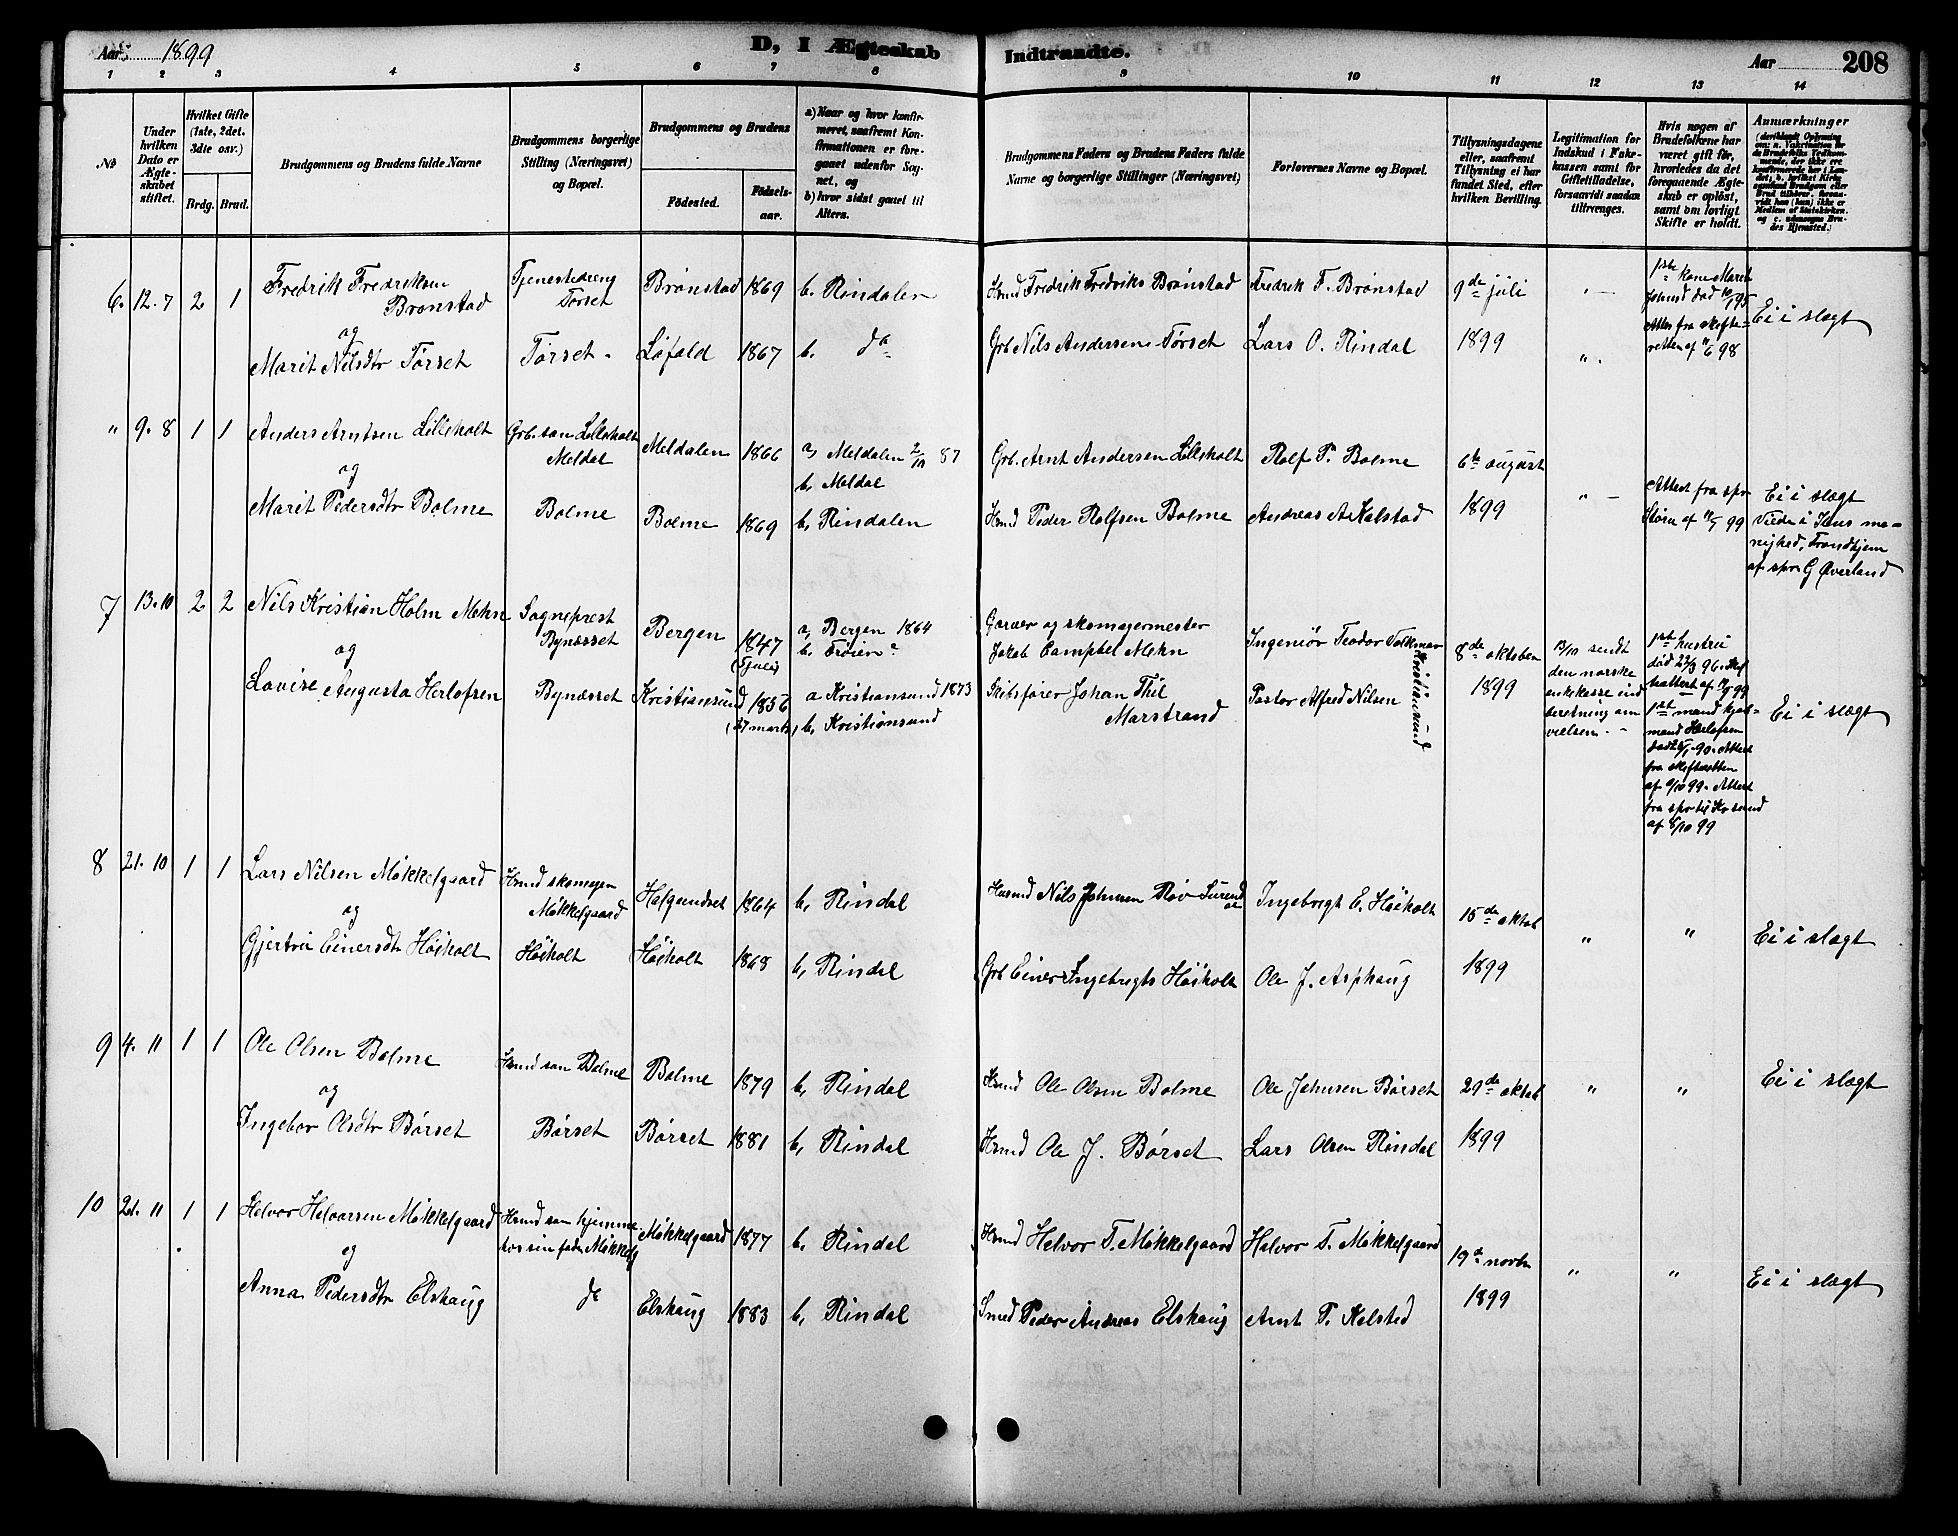 Aar 1899
D, I Ægteskab Indtraadte.
Aar 208
1 2 3 4 5 6 7 8 9 10 11 12 13 14
No
Under hvilken Dato er Ægteskabet stiftet.
Hvilket Gifte (1ste, 2det, 3die osv.)
Brdg. Brud.
Brudgommens og Brudens fulde Navne
Brudgommens borgerlige Stilling (Næringsvei) og Bopæl.
Brudgommens og Brudens
Födested. Födselsaar.
a) Naar og hvor konfirmeret, saafremt Konfirmationen er foregaaet udenfor Sognet, og
b) hvor sidst gaaet til Alters.
Brudgommens Faders og Brudens Faders fulde Navne og borgerlige Stillinger (Næringsvei)
Forlovernes Navne og Bopæl.
Tillysningsdagene eller, saafremt Tillysning ei har fundet Sted, efter hvilken Bevilling.
Legitimation for Indskud i Enkekassen samt for Giftetilladelse, forsaavidt saadan tiltrænges.
Hvis nogen af Brudefolkene har været gift før, hvorledes da det foregaaende Ægteskab er opløst, samt om lovligt Skifte er holdt.
Anmærkninger
6. 12. 7 2 1 Fredrik Fredriksen Brønstad
Tjenestedreng Tørset
Brønstad 1869 b, Rindalen
Hmd Fredrik Fredriks Brønstad
Fredrik F. Brønstad
9de juli
" —
1ste kone Marit Johnsd død
Attes fra skifteretten af 98
Ei i slægt
og
Marit Nilsdtr Tørset
Tørset
Løfald 1867 b. do
Grb Nils Andersen Tørset
Lars O. Rindal
1899
" .
" 9. 8 1 1 Anders Arntsen Lillsholt
Grb. søn Lillsholt Meldal
Meldalen 1866 a, Meldalen 2/10 87
b, Meldal
Grb. Arnt Andersen Lillsholt
Rolf P. Bolme
6te august
og
Marit Pedersdtr Bolme
Bolme
Bolme 1869 b, Rindalen
Hmd Peder Rolfsen Bolme
Andreas A Kalstad
1899
" —
Attest fra spr Støren af 99
Ei i slægt
Viede i menighed, Trondhjem
af spr G Øverland
7 13. 10 2 2 Nils Kristian Holm Mehn
Sogneprest Bynæsset
Bergen 1847 (7 juli)
a, Bergen 1864
b. Frøien
Garver og skomagermester Jakob Campbel Mehn
Ingeniør Teodor Volkmar
Kristiansund
8de oktober
13/10 sendt den norske enkekasse ind beretning om vielsen. -
1ste hustru død
Ei i slægt
og
Lovise Augusta Herlofsen
Bynæsset
Kristiansund 1856 (27 marts)
a Kristiansund 1873
b, Kristiansund
Skibsfører Johan Thil Marstrand
Pastor Alfred Nilsen
1899
1ste mand kjøbmand Herlofsen
fra skifteretten af 99. Attest
fra spr til Kr.sund af 8/10 99
8 21. 10 1 1 Lars Nilsen Møkkelgaard
Hmd skomager Møkkelgaard
Helgundset 1864 b, Rindal
Husmd Nils Johnsen Røv Surendal
Ingebregt E. Høiholt
15de oktob
" " Ei i slægt
og
Gjertru Einersdtr Høiholt
Høiholt
Høiholt 1868 b, Rindal
Grb Einer Ingebregts Høiholt
Ole J. Asphaug
1899
9 4. 11 1 1 Ole Olsen Bolme
Hmd søn Bolme
Bolme 1879 b, Rindal
Hmd Ole Olsen Bolme
Ole Johnsen Børset
29de oktob
" " Ei i slægt
og
Ingebor Olsdtr Børset
Børset
Børset 1881 b, Rindal
Hmd Ole J. Børset
Lars Olsen Rindal
1899
10 21. 11 1 1 Helvor Helvorsen Møkkelgaard
Hmd søn hjemme hos sin fader Møkkelg
Møkkelgaard 1877 b, Rindal
Hmd Helvor T. Møkkelgaard
Halvor T. Møkkelgaard
19de novbr
" " Ei i slægt
og
Anna Pedersdtr Elshaug
do
Elshaug 1883 b, Rindal
Smed Peder Andreas Elshaug
Arnt T. Kalsted
1899